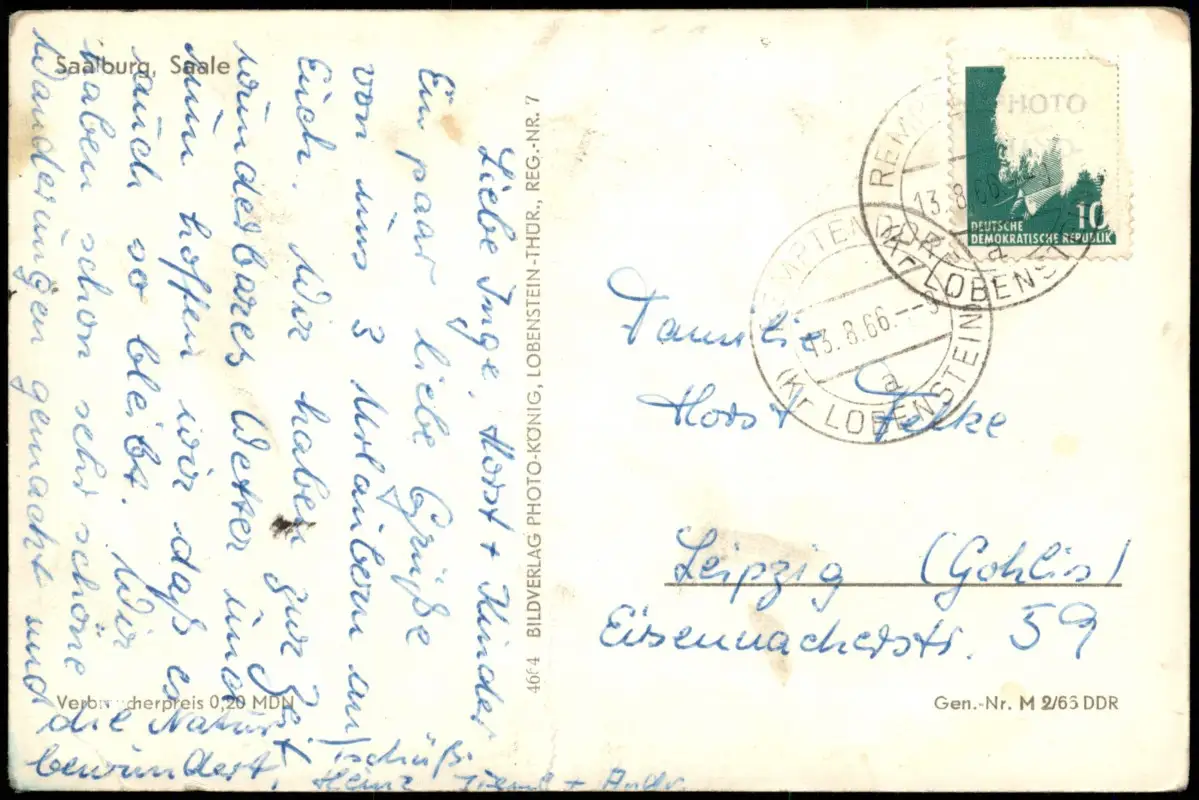 Saalburg, Saale
Liebe Inge, Horst + Kinder
Ein paar liebe Grüße
von uns 3 Urlaubern an
Euch. Wir haben zur Zeit
wunderbares Wetter und
nun hoffen wir daß es
auch so bleibt. Wir
haben schon sehr schöne
Wanderungen gemacht und
die Natur
bewundert.
Tschüß
Heinz + Andr.
Verbraucherpreis 0,20 MDN
4664 BILDVERLAG PHOTO-KÖNIG, LOBENSTEIN-THÜR., REG.-NR. 7
REMPTENDORF
13.8.66
a
(Kr LOBENSTEIN)
REMPTENDORF
13.8.66.--9
a
(Kr LOBENSTEIN)
10
DEUTSCHE
DEMOKRATISCHE REPUBLIK
Familie
Horst Felke
Leipzig (Gohlis)
Eisennacherstr. 59
Gen.-Nr. M 2/66 DDR